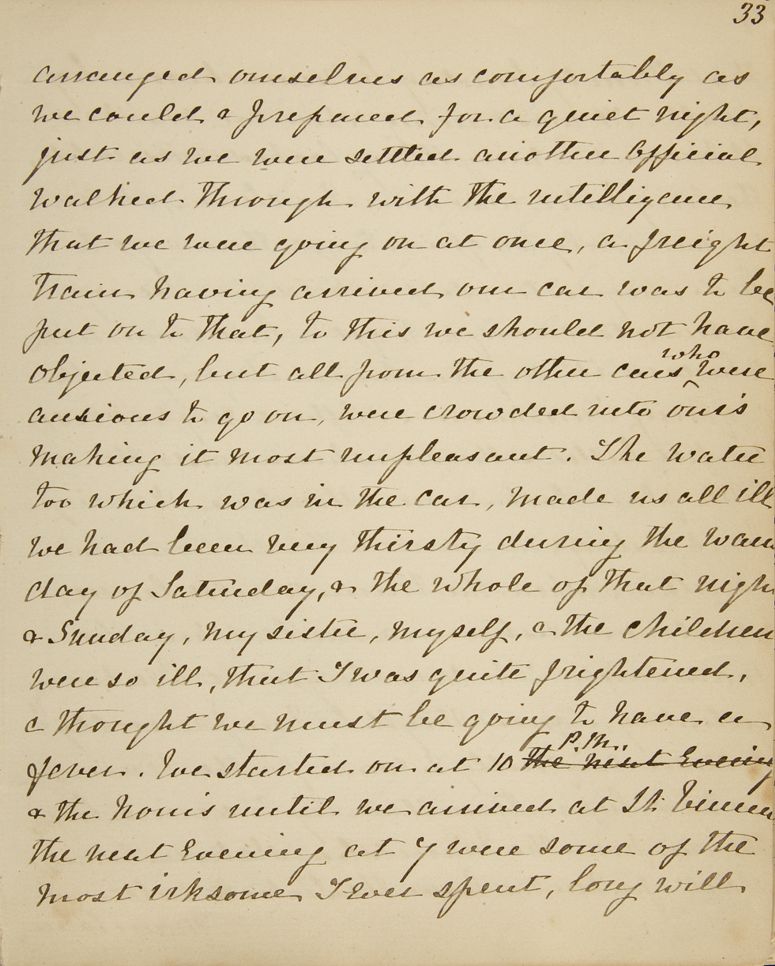 33
arranged ourselves as comfortably as
we could & prepared for a quiet night,
just as we were settled another Official
walked through with the intelligence
that we were going on at once, a freight
train having arrived our car was to be
put on to that, to this we should not have
objected, but all from the other cars who were
anxious to go on, were crowded into our's
making it most unpleasant. The water
too which was in the car, made us all ill
we had been very thirsty during the warm
day of Saturday, & the whole of that night
& Sunday, my sister, myself, & the children
were so ill, that I was quite frightened,
& thought we must be going to have a
fever. We started on at 10 P.M. the next Evening
& the hours until we arrived at St. Vincent
the next Evening at 7 were some of the
most irksome I ever spent, long will